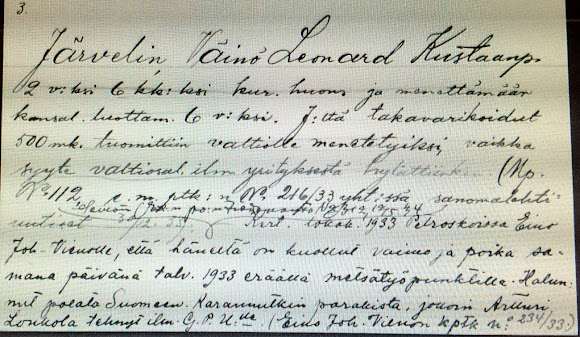 3.
Järvelin, Väinö Leonard Kustaanp.
2 v:ksi 6 kk:ksi kur. huon. ja menettämään
kansal. luottam. 6 v:ksi. J:ltä takavarikoidut
500 mk. tuomittiin valtiolle menetetyiksi, vaikka
syyte valtiosal. ilm. yrityksestä hylättiin. (Mp.
No. 112 e. m. ptk: n No. 216/33 yht:ssä sanomalehti-
uutiset Kert. lokak. 1933 Petroskoissa Eino
Joh. Vienolle, että häneltä on kuollut vaimo ja poika sa-
mana päivänä talv. 1933 eräällä metsätyöpunktilla. Halun-
nut palata Suomeen. Karannutkin parakista, jolloin Artturi
Loukola tehnyt ilm. G.P.U:lle (Eino Joh. Vienon kptk no 234/33.)